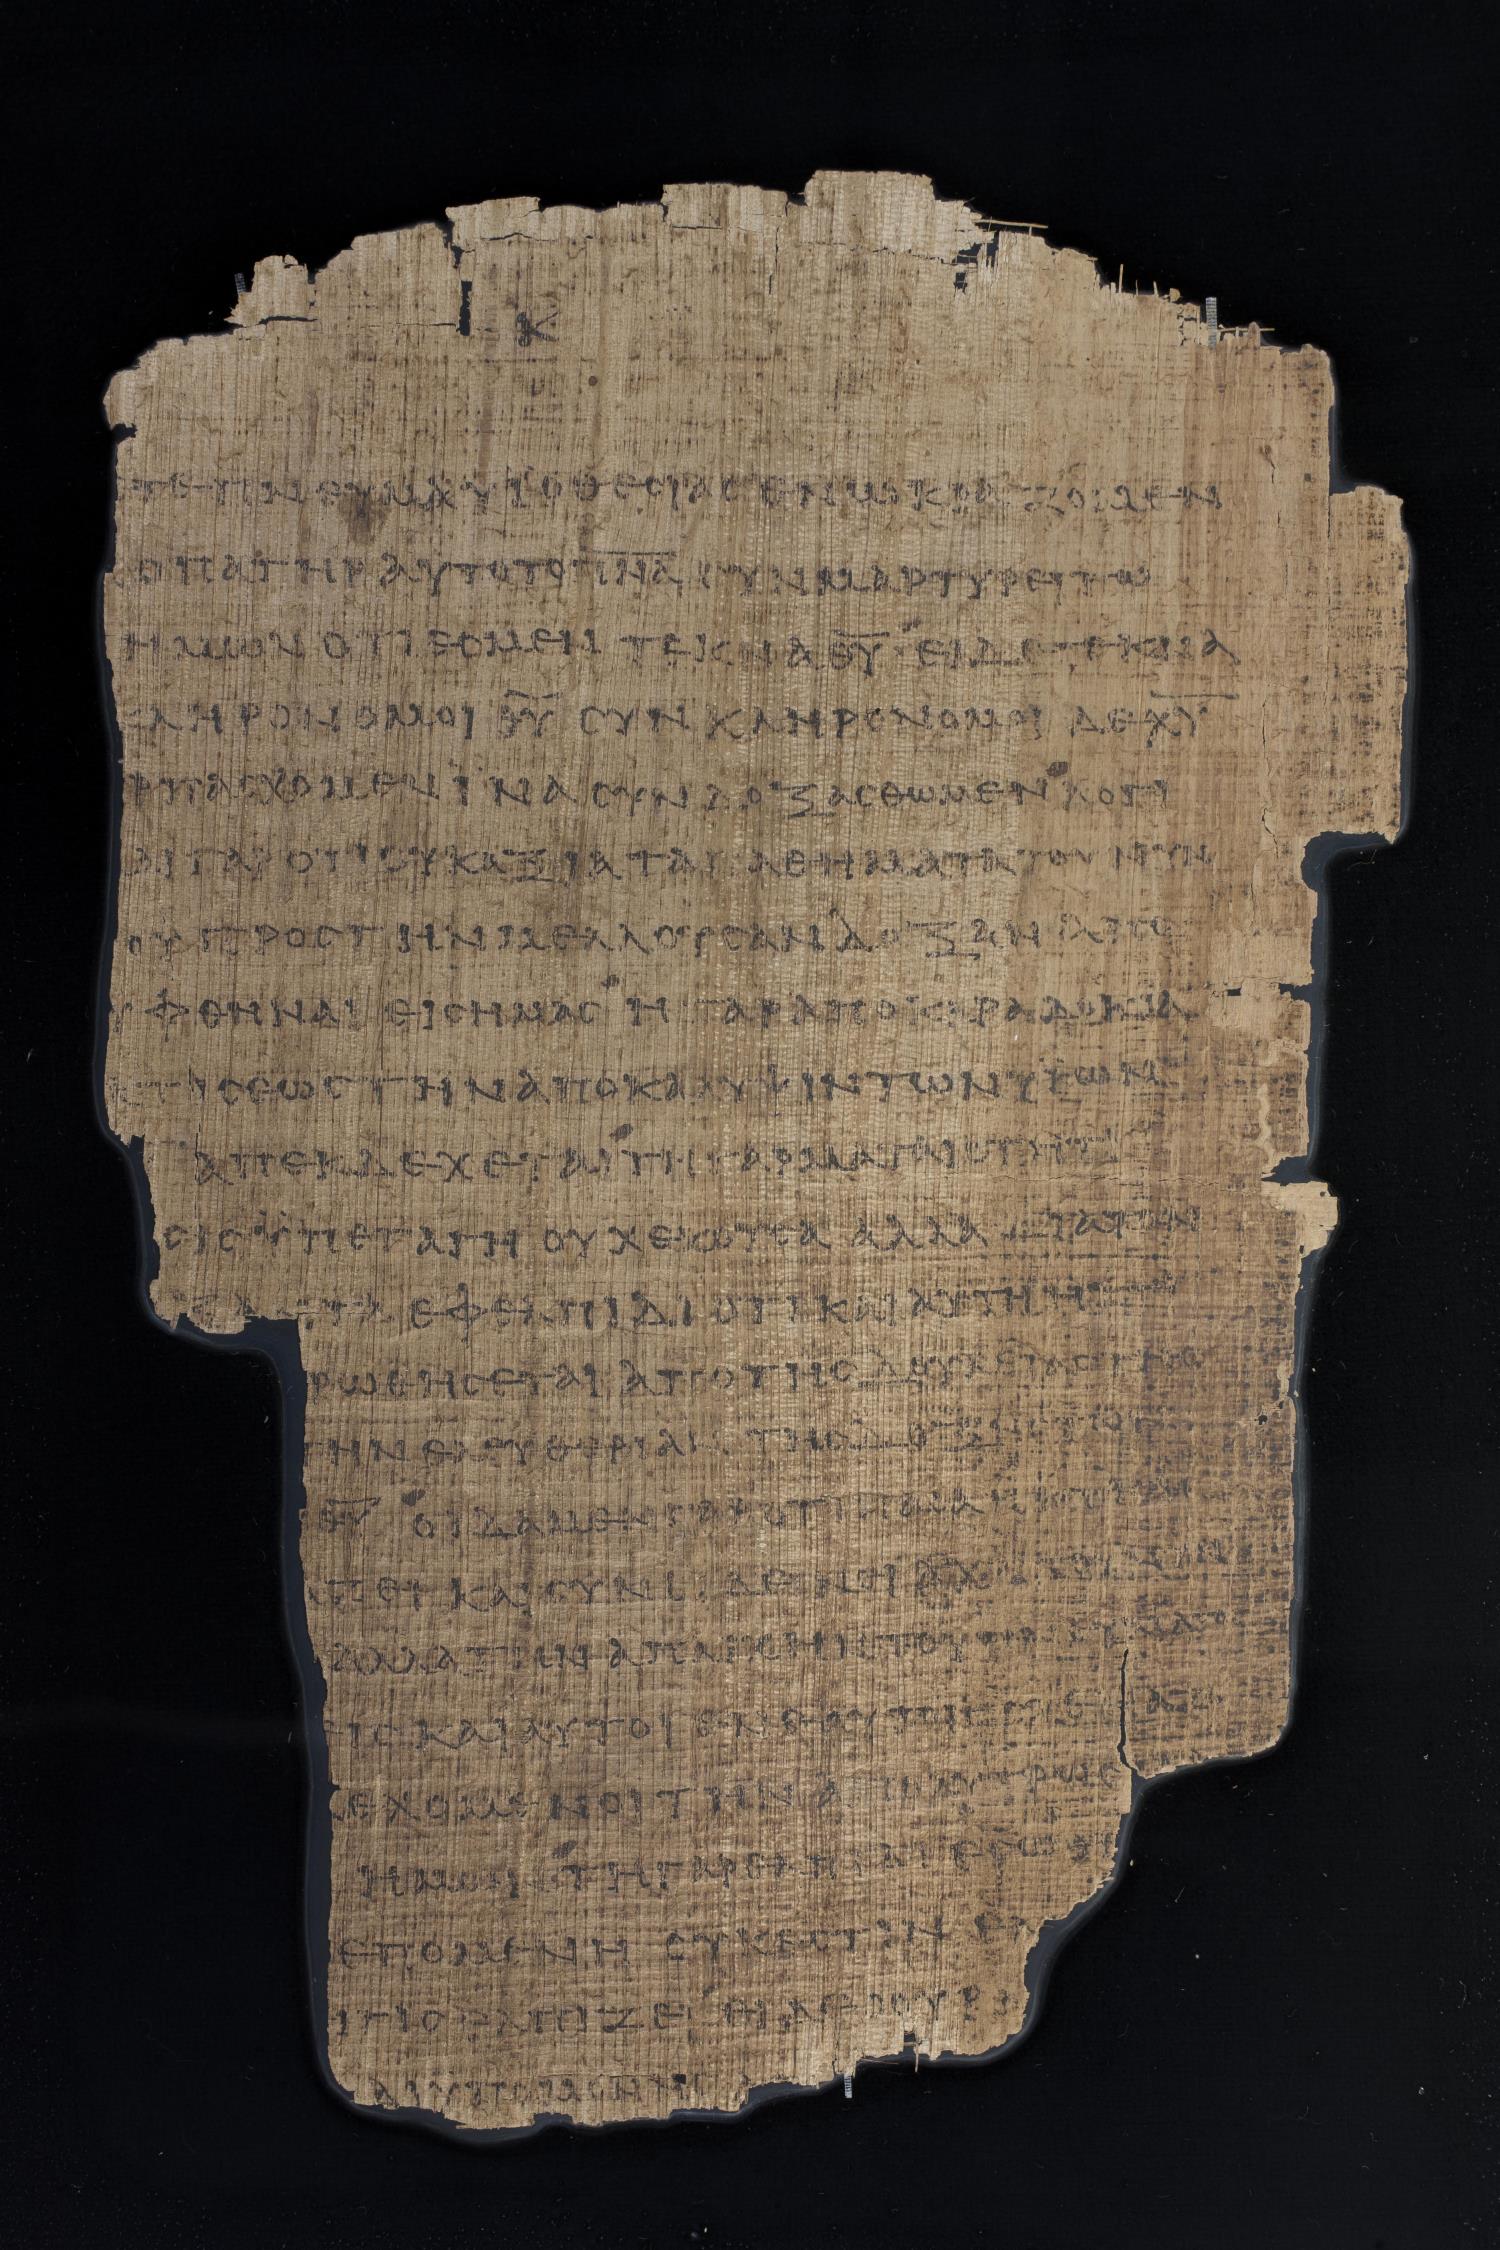 Κ
ΤΕ ΠΝΕΥΜΑ ΥΪΟΘΕCΙΑC ΕΝ Ω ΚΡΑΖΟΜΕΝ
Ο ΠΑΤΗΡ ΑΥΤΟ ΤΟ ΠΝ̅Α̅ CΥΝΜΑΡΤΥΡΕΙ ΤΩ
ΗΜΩΝ ΟΤΙ ΕCΜΕΝ ΤΕΚΝΑ Θ̅Υ̅ ΕΙ ΔΕ ΤΕΚΝΑ
ΚΛΗΡΟΝΟΜΟΙ Θ̅Υ̅ CΥΝΚΛΗΡΟΝΟΜΟΙ ΔΕ Χ̅Υ̅
ΠΑCΧΟΜΕΝ ΪΝΑ CΥΝΔΟΞΑCΘΩΜΕΝ ΛΟΓΙ
ΑΙ ΓΑΡ ΟΤΙ ΟΥΚ ΑΞΙΑ ΤΑ ΠΑΘΗΜΑΤΑ ΤΟΥ ΝΥΝ
ΟΥ ΠΡΟC ΤΗΝ ΜΕΛΛΟΥCΑΝ ΔΟΞΑΝ ΑΠΟ
ΥΦΘΗΝΑΙ ΕΙC ΗΜΑC Η ΓΑΡ ΑΠΟΚΑΡΑΔΟΚΙΑ
ΚΤΙCΕΩC ΤΗΝ ΑΠΟΚΑΛΥΨΙΝ ΤΩΝ ΥΪΩΝ
ΑΠΕΚΔΕΧΕΤΑΙ ΤΗ ΓΑΡ ΜΑΤΑΙΟΤΗΤΙ
CΙC ΫΠΕΤΑΓΗ ΟΥΧ ΕΚΟΥCΑ ΑΛΛΑ ΔΙΑ ΤΟΝ
ΤΑ ΕΦ ΕΛΠΙΔΙ ΟΤΙ ΚΑΙ ΑΥΤΗ Η
ΡΩΘΗCΕΤΑΙ ΑΠΟ ΤΗC ΔΟΥΛΕΙΑC ΤΗC
ΤΗΝ ΕΛΕΥΘΕΡΙΑΝ ΤΗC ΔΟΞΗC ΤΩΝ
Θ̅Υ̅ ΟΙΔΑΜΕΝ ΓΑΡ ΟΤΙ ΠΑCΑ
ΚΑΙ CΥΝ ΔΕΙΝΕΙ ΑΧΡΙ ΤΟΥ ΝΥΝ
ΤΗΝ ΑΠΑΡΧΗΝ ΤΟΥ
ΚΑΙ ΑΥΤΟΙ ΕΝ ΕΑΥΤΟΙC
ΕΧΟΜΕΝΟΙ ΤΗΝ ΑΠΟΛΥΤΡΩC
ΗΜΩΝ ΤΗ ΓΑΡ ΕΛΠΙΔΙ ΕCΩ
ΕΠΟΜΕΝΗ ΟΥΚ ΕCΤΙΝ
ΤΙC ΕΛΠΙΖΕΙ ΕΙ ΔΕ Ο ΟΥ Β
ΔΙ ΥΠΟΜΟΝΗC